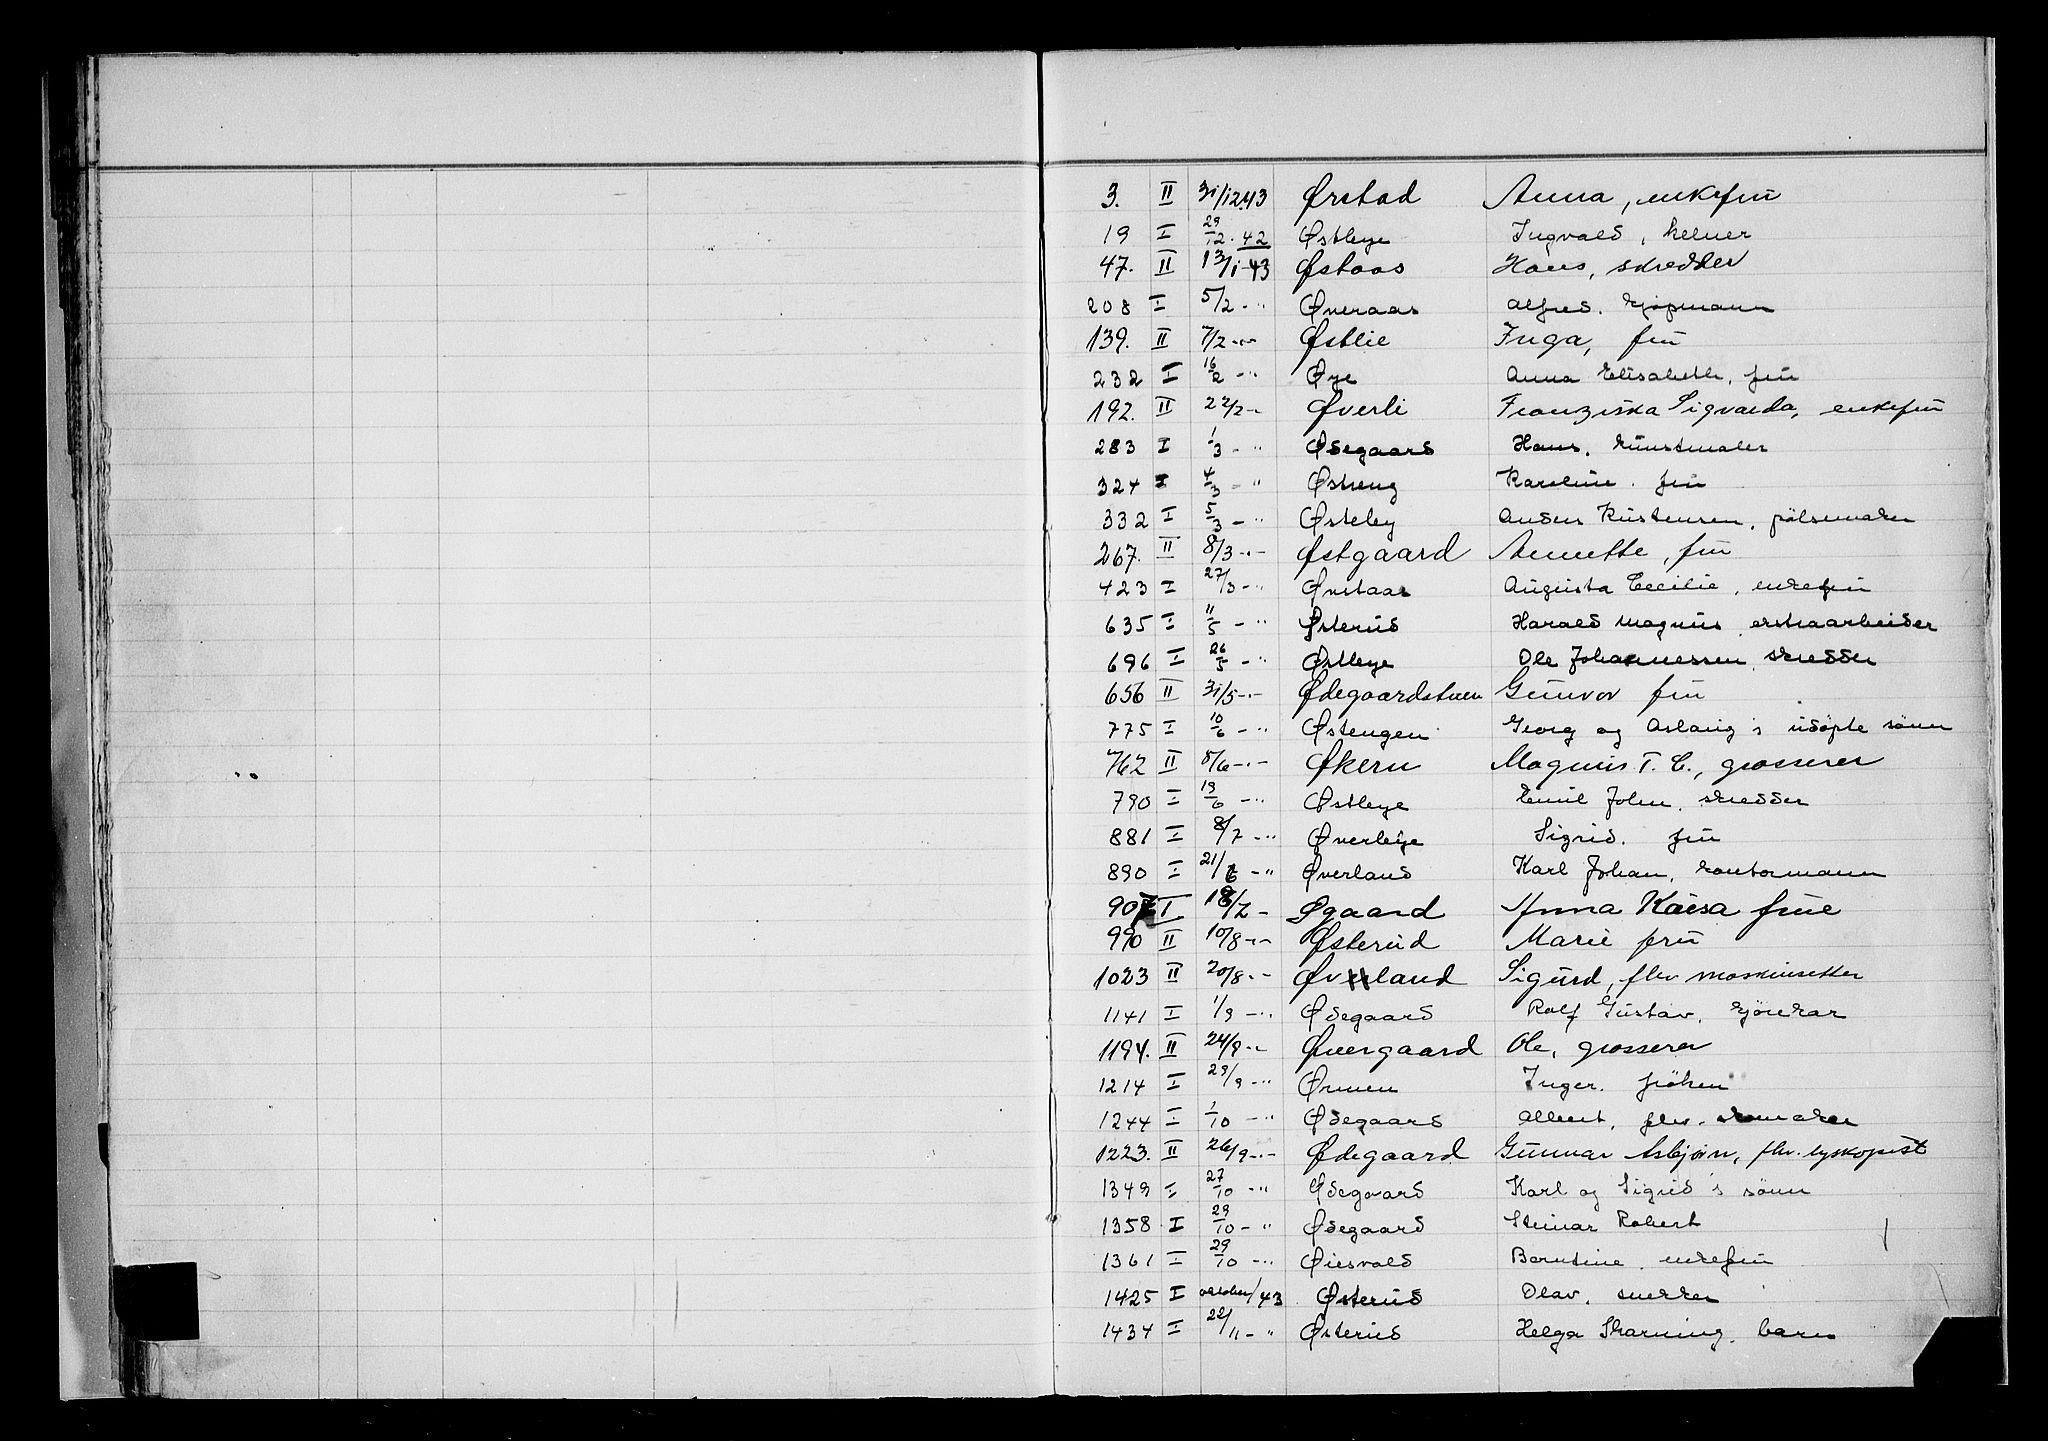 3. II 31/12.43 Ørstad Anna, enkefru
19 I 29/12. 42 Østleye Ingvald, kelner
47. II 13/1-43 Østaas Hans, skredder
208 I 5/2 -" Øveraas Alfred. kjöpmann
139. II 7/2 -"- Østlie Inga, fru
232 I 16/2 -" Øye Anna Elisabeth, fru
192. II 22/2 -"- Øverli Franziska Sigvarda, enkefru
283 I 1/3 -" Ødegaard Hans. kunstmaler
324 I 4/3 -" Østreng Karoline. fru
332 I 5/3 -" Østeby Anders Kristensen, pölsemaker
267. II 8/3 -"- Østgaard Annette, fru
423 I 27/3 -" Øvstaas Augusta Cecilie, enkefru
635 I 11/5 -" Østerud Harald Magnus. ekstraarbeider
696 I 26/5 -" Østleye Ole Johannessen, skredder
656 II 31/5 -"- Ødegaardstuen Gunvor fru
775 I 10/6 -" Østengen Georg og Aslaug's udöpte sönn
762 II 8/6 -"- Økern Magnus T. C., grosserer
790 I 19/6 -" Østleye Emil John, skredder
881 I 8/7 -" Øverleye Sigrid. fru
890 I 21/6 -" Øverland Karl Johan, kontormann
907 I 18/7 - Øgaard Anna Kaisa frue
990 II 10/8 -"- Østerud Marie fru
1023 II 20/8 -"- Øverland Sigurd, fhv maskinsetter
1141 I 1/9 -" Ødegaard Rolf Gustav. kjörekar
1194. II 24/9 -"- Øvergaard Ole, grosserer
1214 I 29/9 -" Ørmen Inger. fröken
1244 I 1/10 -" Ødegaard Albert, fhv. skomaker
1223. II 26/9 -"- Ødegaard Gunnar Asbjørn, fhv. lyskopist
1349 I 27/10 -" Ødegaard Karl og Sigrid's sönn
1358 I 29/10 -" Ødegaard Steinar Robert
1361 I 29/10 -" Øiesvold Berntine. enkefru
1425 I oktober/43 Østerud Olav. snekker
1434 I 22/11 -" Østerud Helga Skarning. barn